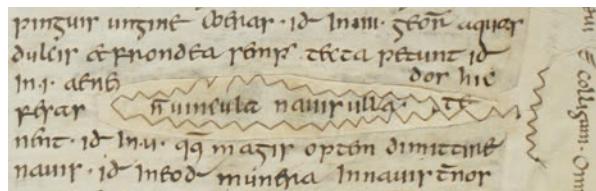 pinguis ungine ceras · id in · iiii · georg aquas
dulcis et frondea semp tecta petunt id
in · i · aene dos hic
fesas n uincula nauis ulla · te
nent · id in · u · qa magis opten dimittere
nauis · id in eod munera in nauis t̄nos
colligam · Om